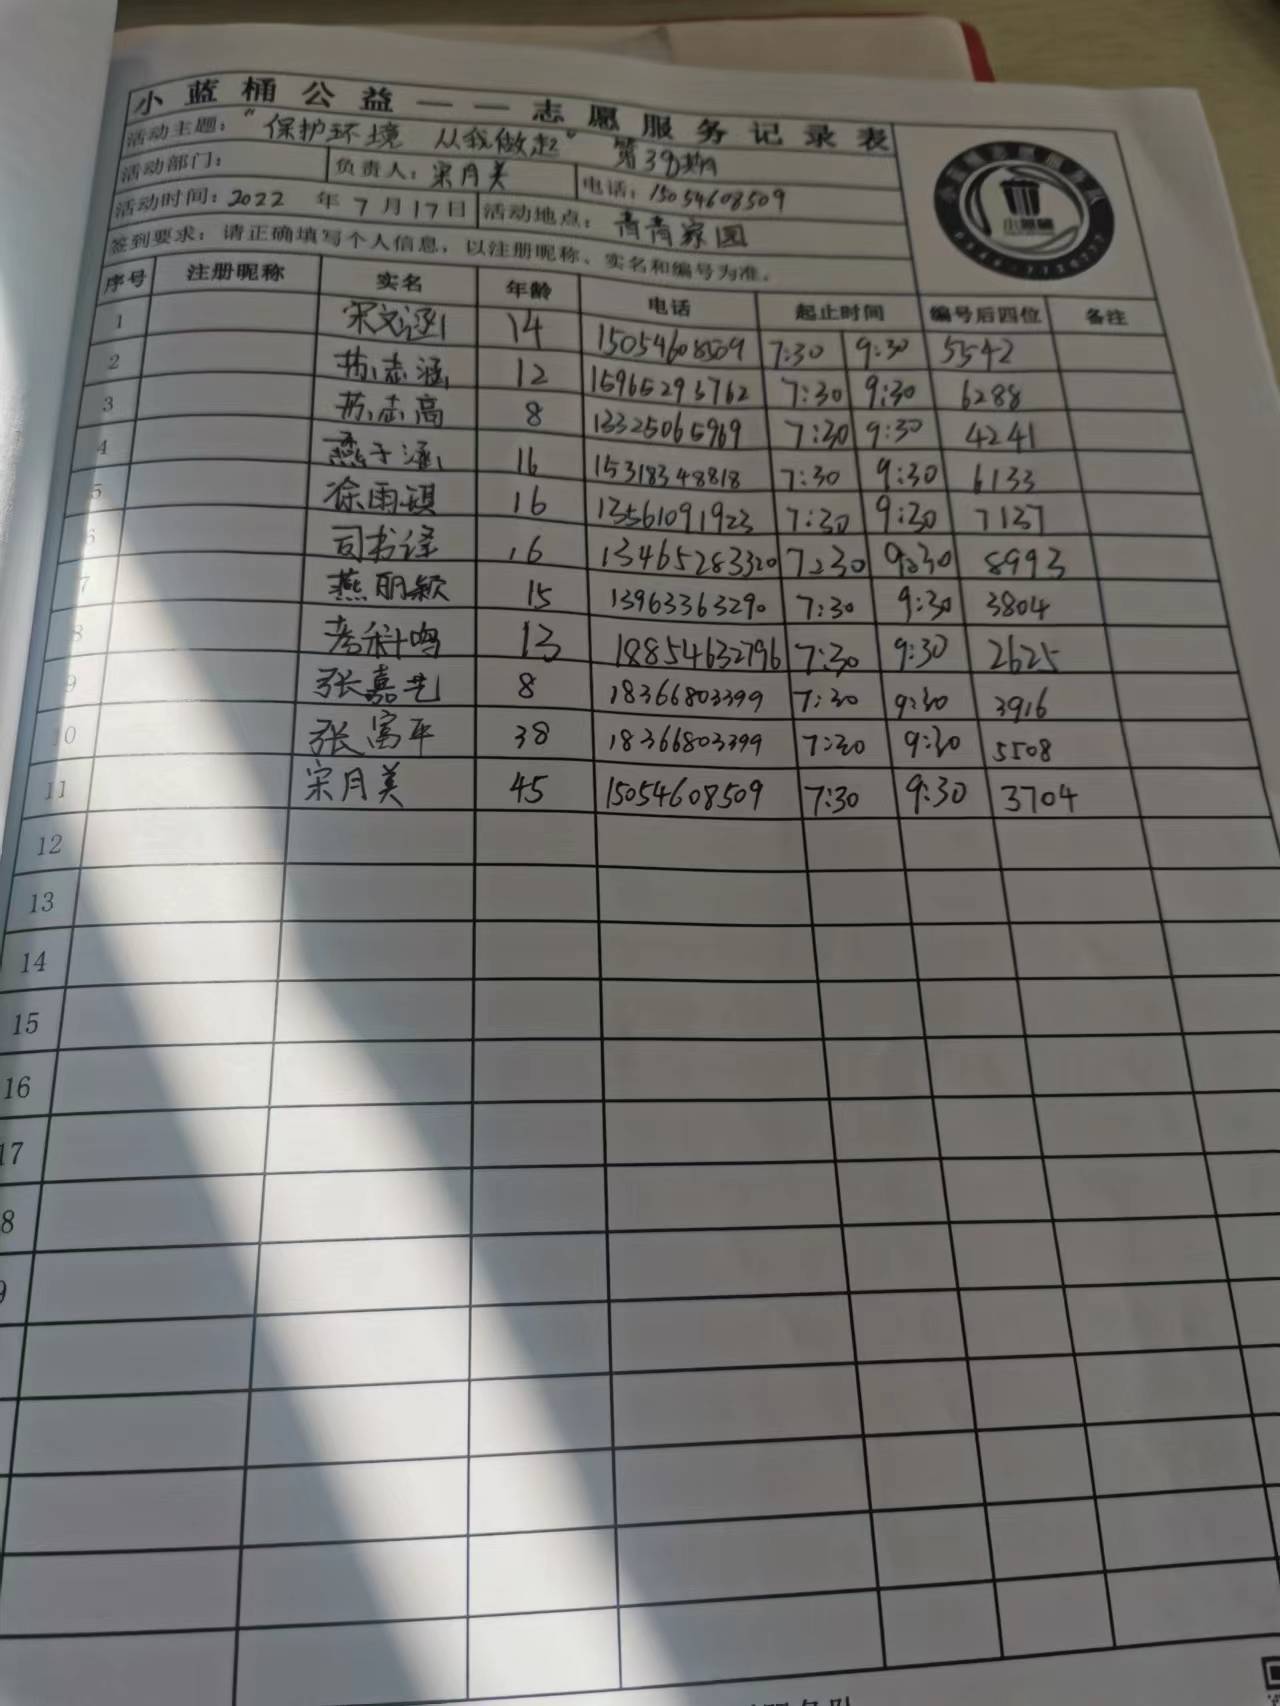 小蓝桶公益——志愿服务记录表
活动主题："保护环境 从我做起" 第38期
活动部门： 负责人：宋月美 电话：15054608509
活动时间：2022年7月17日 活动地点：青青家园
签到要求：请正确填写个人信息，以注册昵称、实名和编号为准。
序号 注册昵称 实名 年龄 电话 起止时间 编号后四位 备注
1 宋文涵 14 15054608509 7:30 9:30 5542
2 苏志涵 12 15965293762 7:30 9:30 6288
3 苏志高 8 13325065969 7:30 9:30 4241
4 燕子涵 16 15318348818 7:30 9:30 6133
5 徐雨琪 16 13561091923 7:30 9:30 7137
6 司书译 16 13465283320 7:30 9:30 8993
7 燕丽颖 15 13963363290 7:30 9:30 3804
8 李科鸣 13 18854632796 7:30 9:30 2625
9 张嘉艺 8 18366803399 7:30 9:30 3916
10 张富平 38 18366803399 7:30 9:30 5508
11 宋月美 45 15054608509 7:30 9:30 3704
12
13
14
15
16
17
8
9
小蓝桶